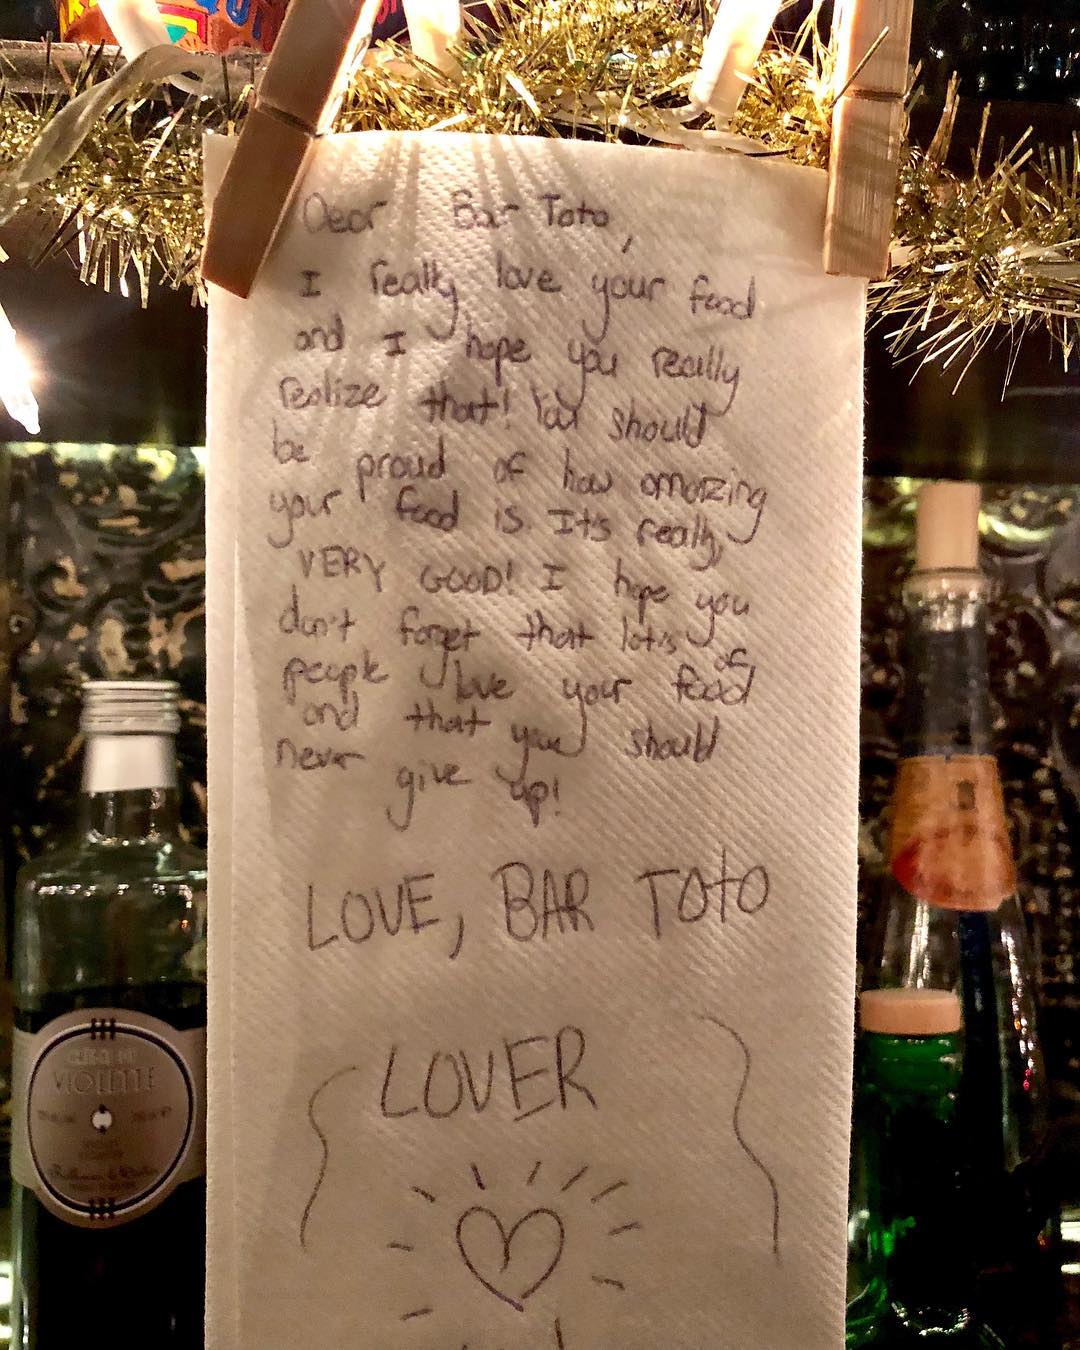 Dear Bar Toto,
I really love your food
and I hope you really
realize that! You should
be proud of how amazing
your food is It's really,
VERY GOOD! I hope you
don't forget that lots of
people love your food
and that you should
never give up!
LOVE, BAR TOTO
LOVER
VIOLETTE